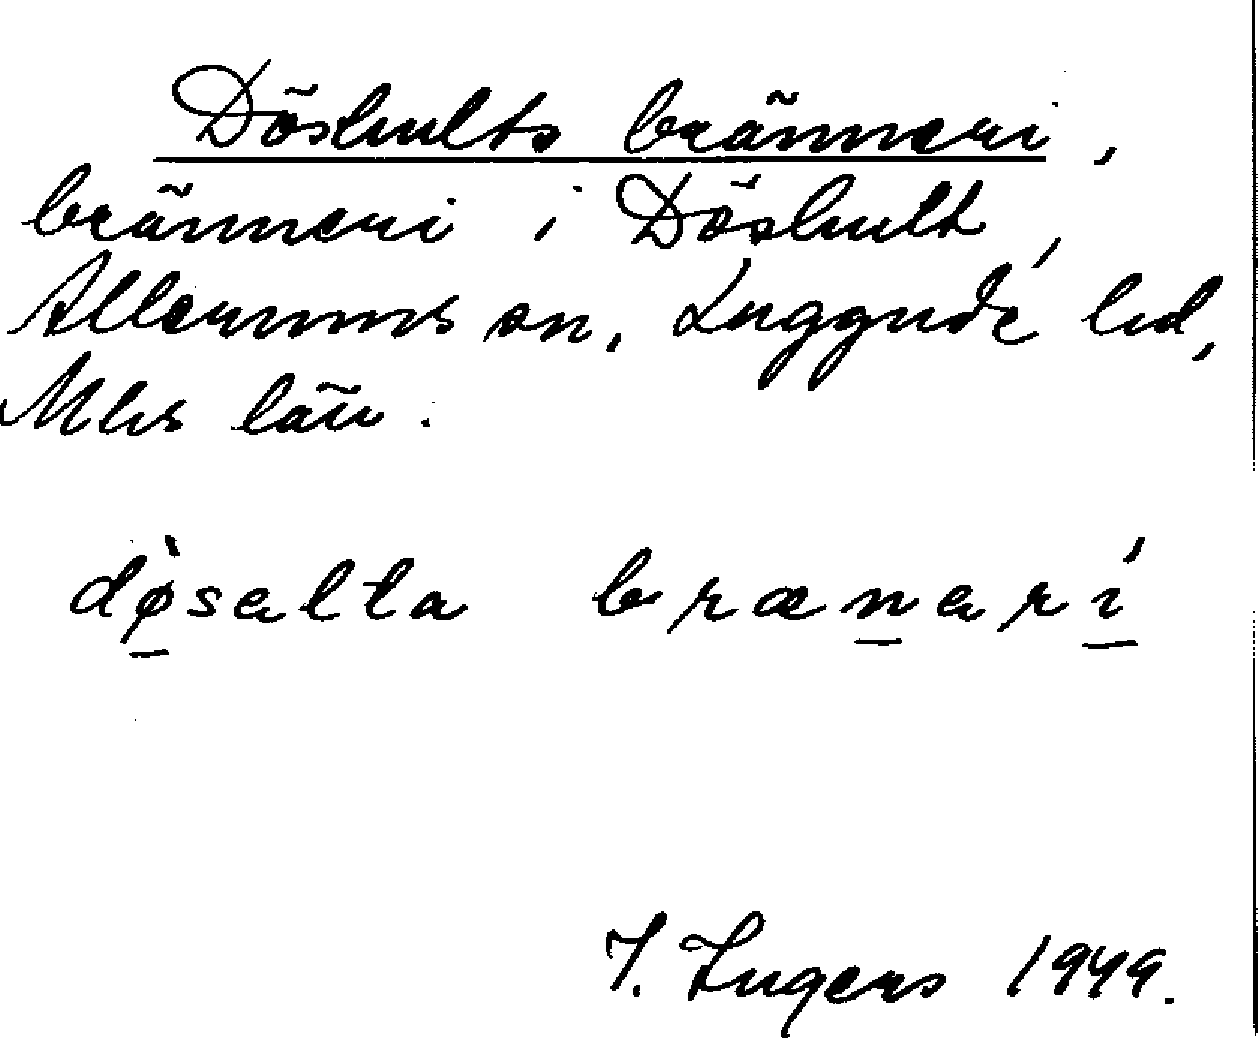 Döshults bränneri,
bränneri i Döshult,
Allerums sn, Luggude hd,
Mhs län.
dø̀salta brænarí
I. Ingers 1949.